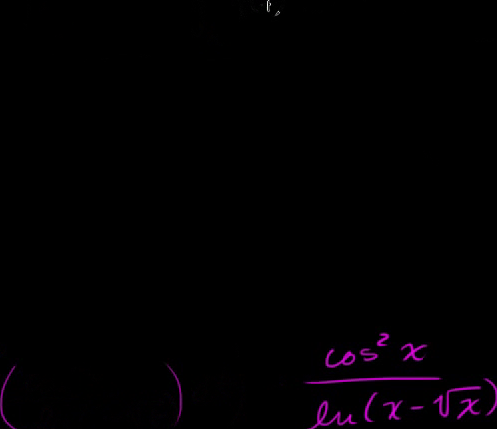 cos² x
( ) ln(x - √x)